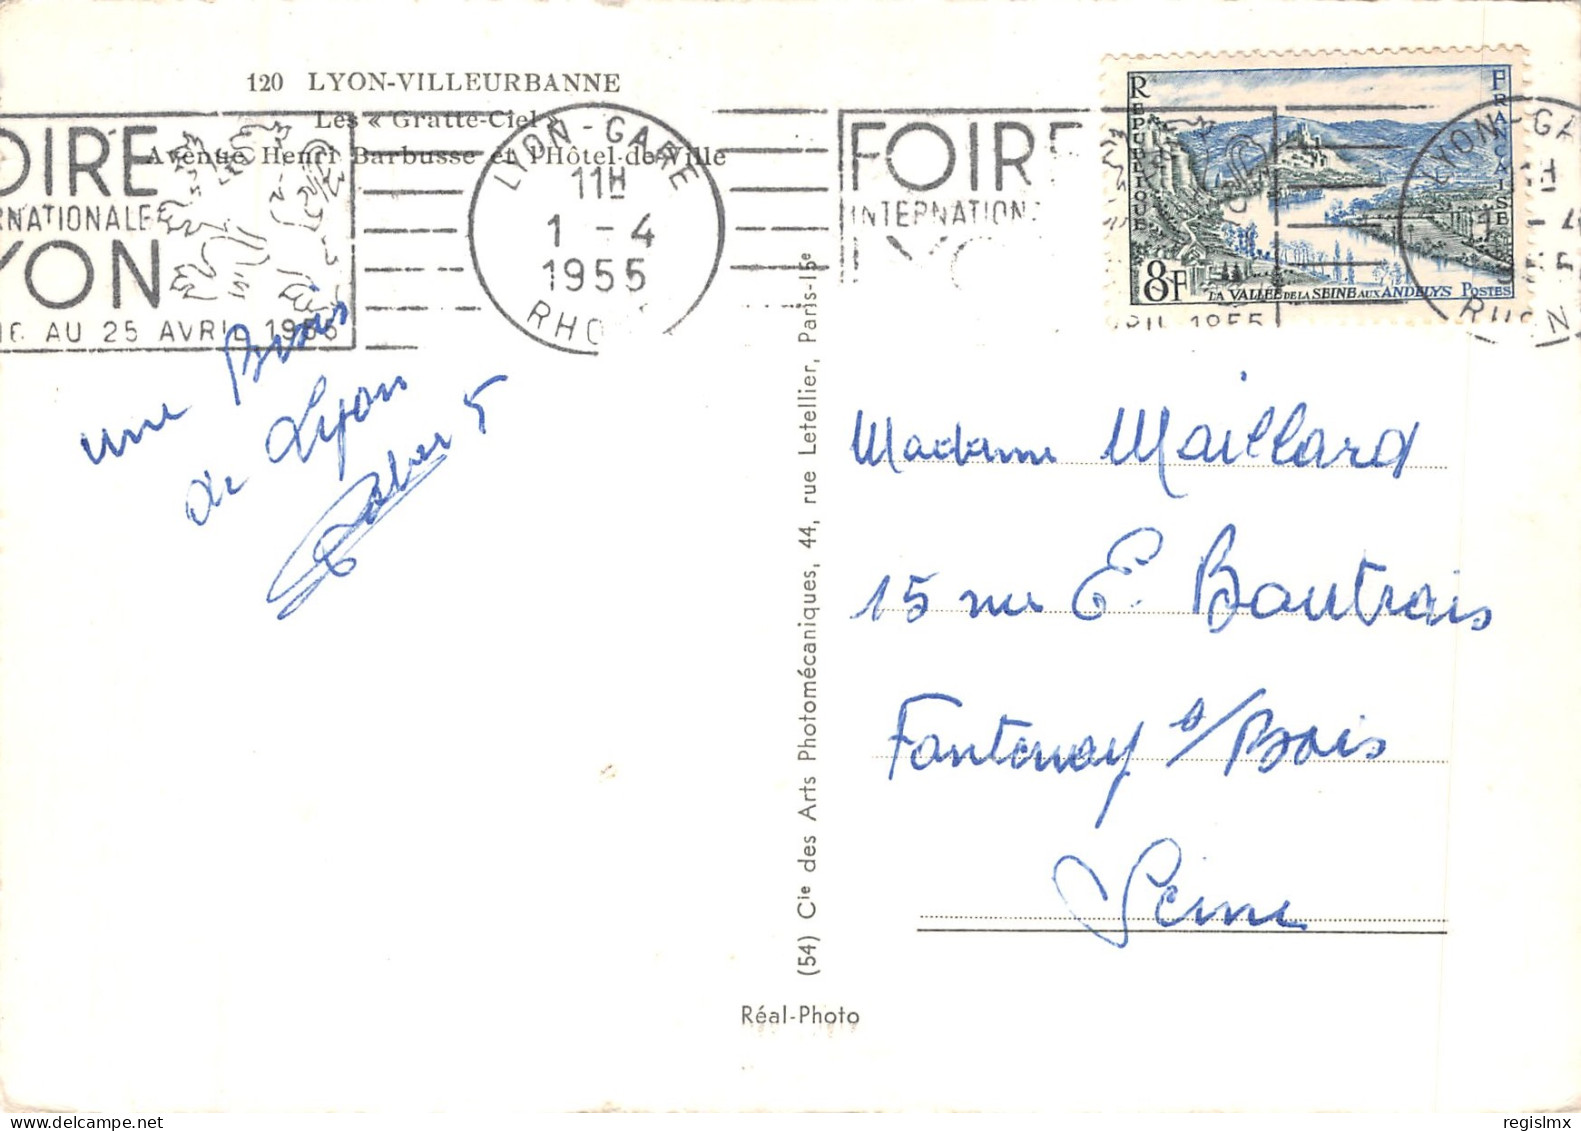 120 LYON-VILLEURBANNE
Les « Gratte-Ciel »
Avenue Henri Barbusse et l'Hôtel de Ville
OIRE
RNATIONALE
YON
16 AU 25 AVRIL 1955
LYON-GARE
11H
1 - 4
1955
RHO
FOIRE
INTERNATION
LYO
RIL 1955
REPUBLIQUE
FRANÇAISE
8F
LA VALLÉE DE LA SEINE AUX ANDELYS POSTES
LYON-GA
1H
- 4
RHON
une Bises
de Lyon
Madame Maillard
15 rue E. Boutrais
Fontenay s/Bois
Seine
(54) Cie des Arts Photomécaniques, 44, rue Letellier, Paris-15e
Réal-Photo
regislmx